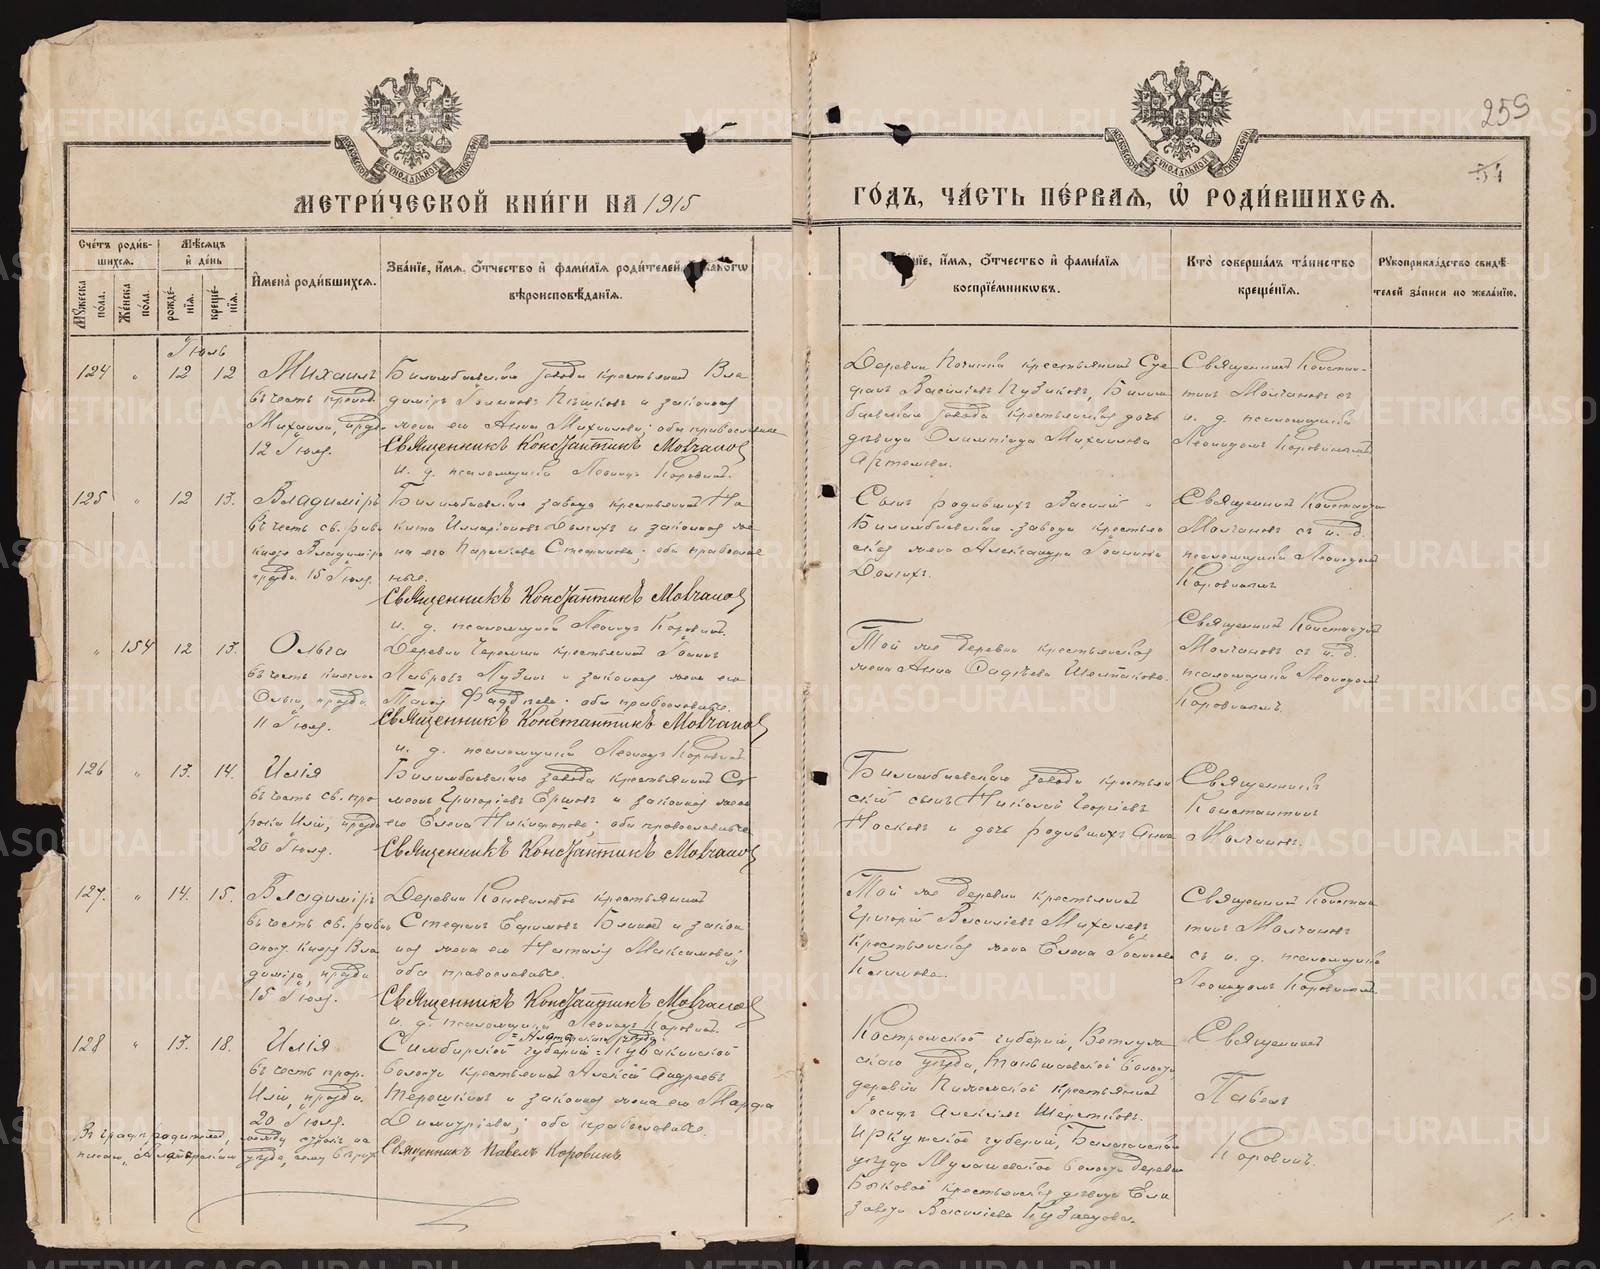 259
54
МЕТРИ́ЧЕСКОЙ КНИ́ГИ НА 1915
ГО́ДЪ, ЧА́СТЬ ПЕ́РВАЯ, Ѡ҆ РОДИ́ВШИХСЯ.
Сче́тъ роди́в-
шихся.
Мѣ́сяцъ
и҆ де́нь
Мꙋ́жеска по́ла.
Же́нска по́ла.
рожде́-
нїя.
креще́-
нїя.
И҆мена̀ роди́вшихся.
Зва́нїе, и҆́мя, ѻ҆́тчество и҆ фами́лїя роди́телей,
вѣроисповѣ́данїя.
и҆́мя, ѻ҆́тчество и҆ фами́лїя
воспрїе́мникѡвъ.
Кто̀ соверша́лъ та́инство
креще́нїя.
Рꙋкоприкла́дство свидѣ́-
телей за́писи по жела́нїю.
Іюль
124 " 12 12
Михаилъ
Михаила, празд.
12 Іюля.
Билимбаевскаго завода крестьянинъ Вла
димiръ Іоанновъ Пѣшковъ и законная
жена его Анна Михаилова; оба православные
Священникъ Константинъ Молчановъ
и. д. псаломщика Леонидъ Коровинъ.
Деревни Починка крестьянинъ
Василіевъ Пузиковъ, Билим
баевскаго завода крестьянская дочь
дѣвица Олимпіада Михаилова
Артемова.
Священникъ Констан-
тинъ Молчановъ съ
и. д. псаломщика
Леонидомъ Коровинымъ
125 " 12 13.
Владиміръ
въ честь св. равн.
князя Владиміра
празд. 15 Іюля.
Билимбаевскаго завода крестьянинъ Ни
кита Илларіоновъ Долгихъ и законная же
на его Параскева Стефанова; оба православ
ные.
Священникъ Константинъ Молчановъ
и. д. псаломщика Леонидъ Коровинъ.
Сынъ родившихъ Василій и
Билимбаевскаго завода крестьян
ская жена Александра Іоаннова
Долгихъ.
Священникъ Константин
Молчановъ съ и. д.
псаломщика Леонидомъ
Коровинымъ
" 154 12 13.
Ольга
въ честь княгини
Ольги, празд.
11 Іюля.
Деревни Черемши крестьянинъ Іоаннъ
Лавровъ Пузинъ и законная жена его
Фаддеева; оба православные.
Священникъ Константинъ Молчановъ
и. д. псаломщика Леонидъ Коровинъ.
Той же деревни крестьянская
жена Анна Фадѣева Шелпакова.
Священникъ Константин
Молчановъ съ и. д.
псаломщика Леонидомъ
Коровинымъ.
126 " 13. 14.
Илія
въ честь св. про
рока Иліи, празд.
20 Іюля.
Билимбаевскаго завода крестьянинъ Си
меонъ Григоріевъ Ершовъ и законная жена
его Елена Никифорова; оба православные
Священникъ Константинъ Молчановъ
Билимбаевскаго завода крестьян
скій сынъ Николай Георгіевъ
Носковъ и дочь родившихъ Анна
Священникъ
Константинъ
Молчановъ.
127. " 14. 15.
Владиміръ
въ честь св. равн
апост. князя Вла
димiра, празд.
15 Іюля.
Деревни Коноваловой крестьянинъ
Стефанъ Ефимовъ и закон
ная жена его Наталія Максимова;
оба православные.
Священникъ Константинъ Молчановъ
и. д. псаломщика Леонидъ Коровинъ.
Той же деревни крестьянинъ
Григорій Василіевъ Михалевъ,
крестьянская жена Елена Іоаннова
Климова.
Священникъ Констан
тинъ Молчановъ
съ и. д. псаломщика
Леонидомъ Коровинымъ
128 " 13. 18.
Илія
въ честь прор.
Иліи, празд.
20 Іюля.
= Алатырскаго уѣзда
Симбирской губерніи = Кувакинской
волости крестьянинъ Алексій Андреевъ
Терешкинъ и законная жена его Марфа
Димитріева; оба православные.
Священникъ Павелъ Коровинъ
Костромской губерніи, Ветлуж
скаго уѣзда, Тоншаевской волости,
деревни крестьянинъ
Іосифъ Алексѣевъ Шерстковъ.
Иркутской губерніи, Балаганскаго
уѣзда волости деревни
Быковой крестьянская дѣвица Ели
завета Василіева Кузнецова.
Священникъ
Павелъ
Коровинъ.
Въ графѣ родителей, между строкъ на
писано „Алатырскаго уѣзда, тому вѣрить